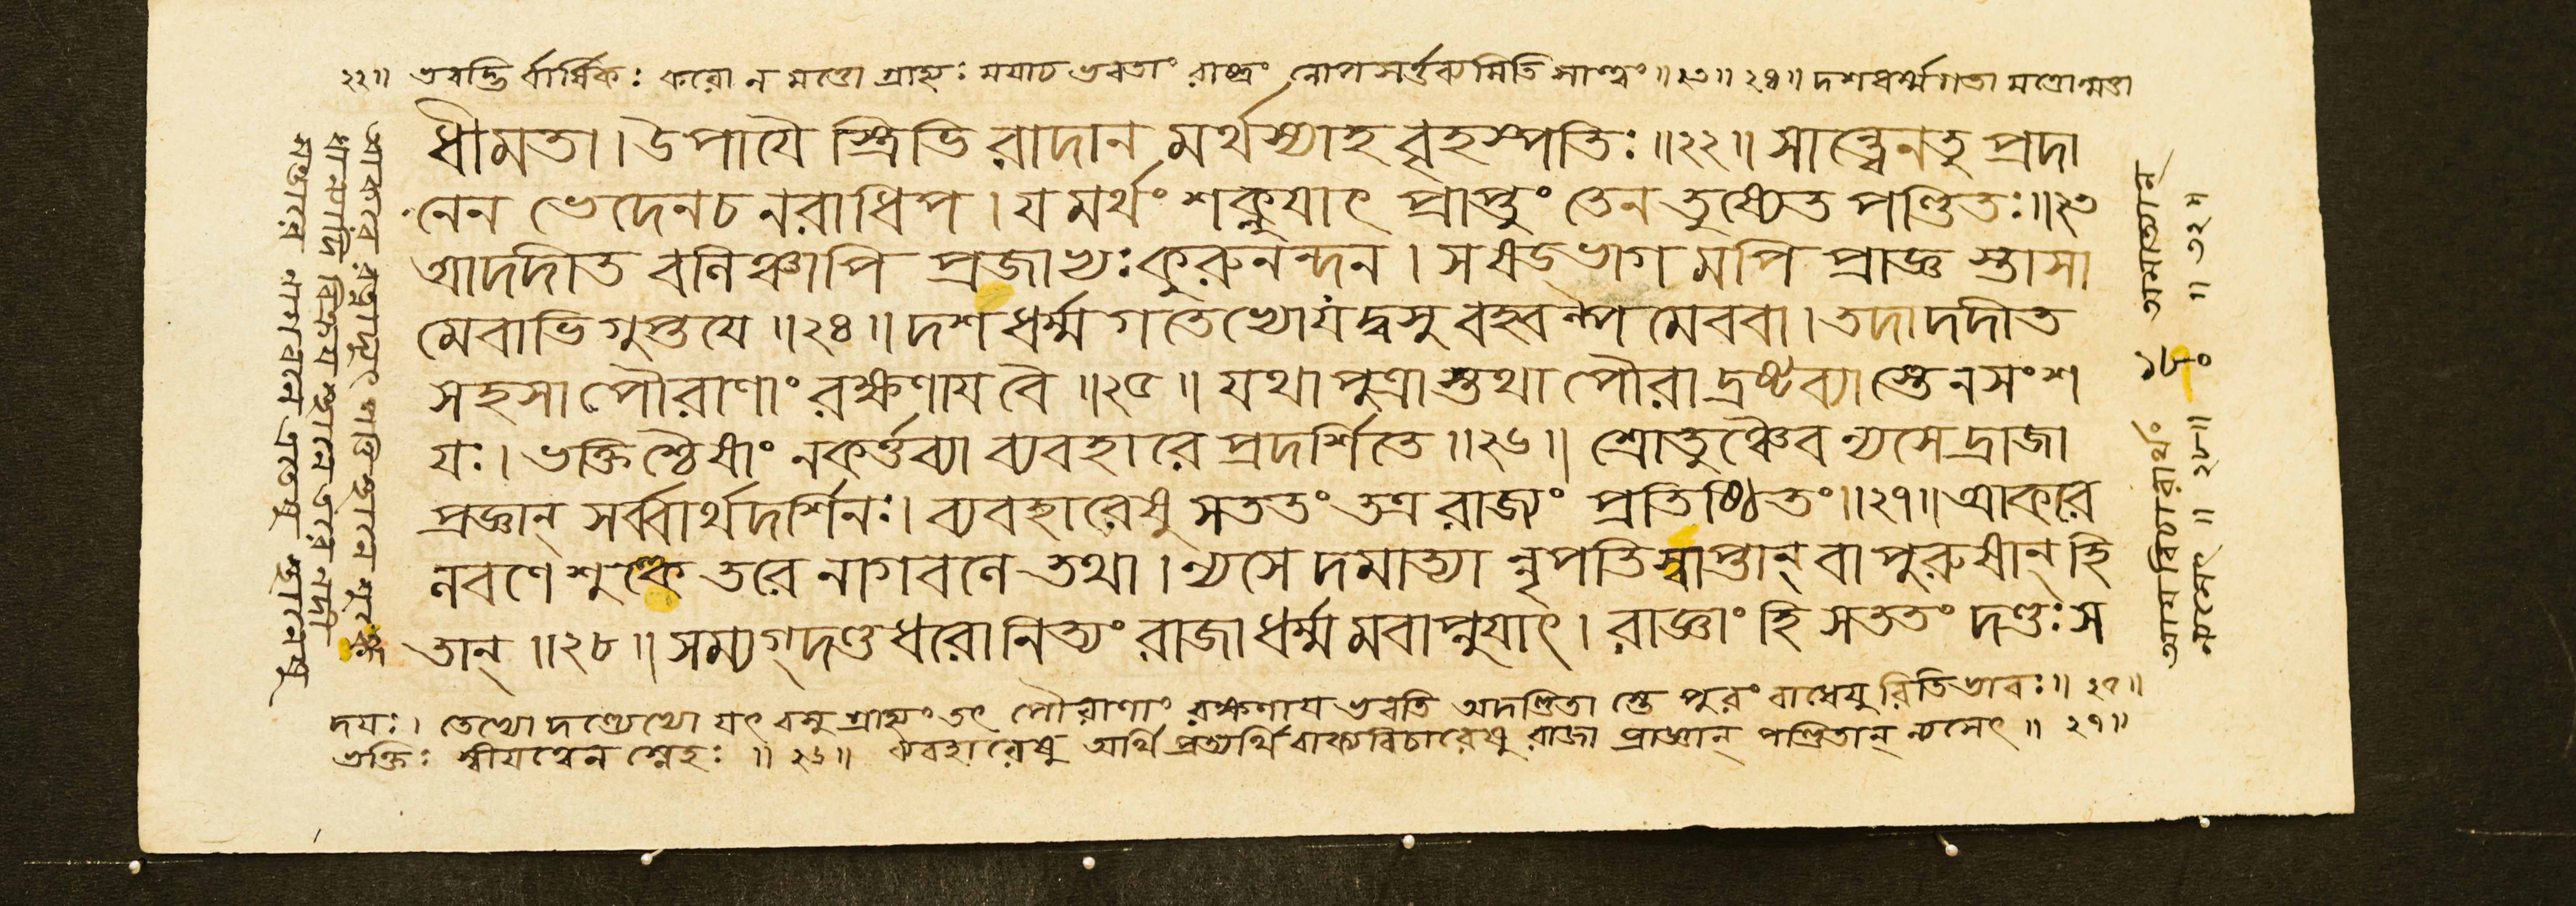 ২২॥ ভবদ্ভি র্বার্ষিকঃ করো ন মত্তো গ্রাহ্যঃ ময়াচ ভবতাং রাষ্ট্রং নোপসর্ত্তব্যমিতি সান্ত্বং॥২৩॥২৪॥ দশধর্ম্মগতা মত্তোন্মত্তা
ধীমতা।উপাযৈ স্ত্রিভি রাদান মর্থস্যাহ বৃহস্পতিঃ॥২২॥ সান্ত্বেনতু প্রদা
নেন ভেদেনচ নরাধিপ। যমর্থং শক্নুযাৎ প্রাপ্তুং তেন তুষ্যেত পণ্ডিতঃ॥২৩
আদদীত বলিঞ্চাপি প্রজাভ্যঃকুরুনন্দন। সষড্ভাগ মপি প্রাজ্ঞ স্তাসা
মেবাভি গুপ্তযে॥২৪॥ দশধর্ম্ম গতেভ্যোযদ্বসু বহ্বল্প মেববা।তদাদদীত
সহসা পৌরাণাং রক্ষণাযবৈ॥২৫॥ যথা পুত্রা স্তথা পৌরা দ্রষ্টব্যা স্তেনসংশ
যঃ। ভক্তি শ্চৈষাং নকর্ত্তব্যা ব্যবহারে প্রদর্শিতে॥২৬॥ শ্রোতুঞ্চৈব ন্যসেদ্রাজা
প্রজ্ঞান্ সর্ব্বার্থদর্শিনঃ। ব্যবহারেষু সততং তত্র রাজ্যং প্রতিষ্ঠিতং॥২৭॥আকরে
লবণে শুল্কে তরে নাগবলে তথা।ন্যসে দমাত্যা ন্নৃপতিস্বাপ্তান্ বা পুরুষান্ হি
তান্॥২৮॥ সম্যগ্দণ্ডধরো নিত্যং রাজা ধর্ম্ম মবাপ্নুযাৎ। রাজ্ঞাং হি সততং দণ্ডঃস
দযঃ। তেভ্যো দণ্ড্যেভ্যো যৎ বসু গ্রাহ্যং তৎ পৌরাণাং রক্ষণায ভবতি অদণ্ডিতা স্তে পুরং বাধেযু রিতিভাবঃ॥২৫॥
ভক্তিঃ স্বীযত্বেন স্নেহঃ॥২৬॥ ব্যবহারেষু অর্থি প্রত্যর্থি বাক্যবিচারেষু রাজা প্রাজ্ঞান্ পণ্ডিতান্ ন্যসেৎ॥২৭॥
আয বিচারার্থং অমাত্যান্
ন্যসেৎ॥২৮॥